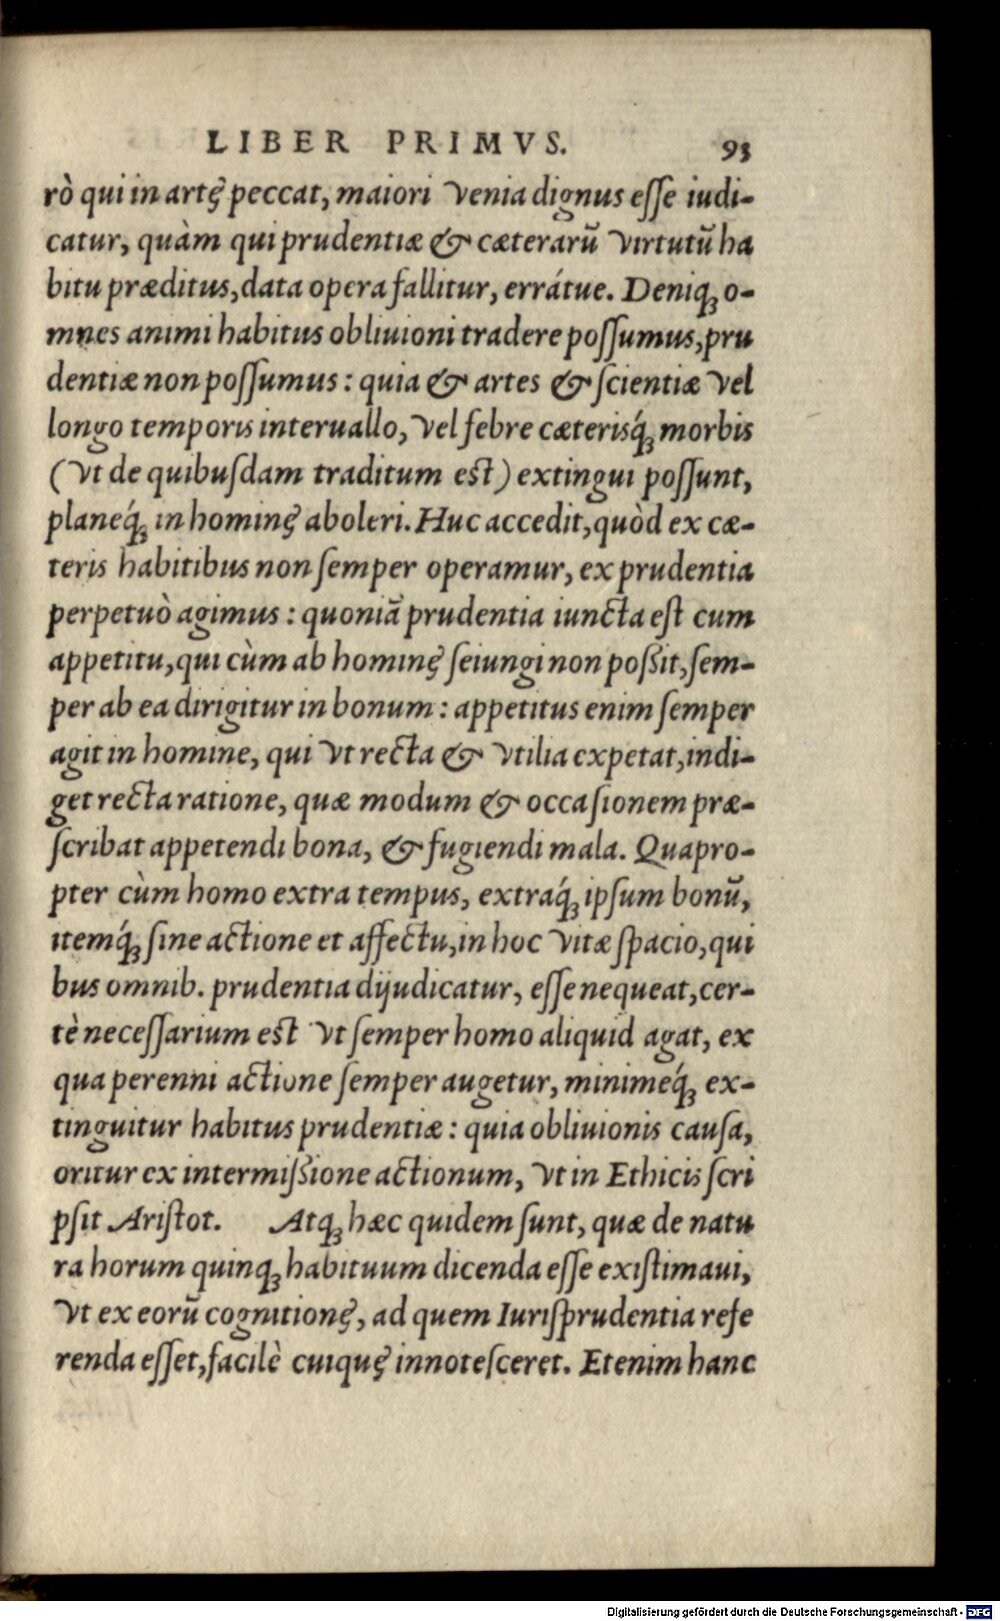 LIBER PRIMVS. 93
rò qui in artę peccat, maiori venia dignus eſſe iudi-
catur, quàm qui prudentiæ & cæterarũ virtutũ ha
bitu præditus, data opera fallitur, errátue. Deniq; o-
mnes animi habitus obliuioni tradere poſſumus, pru
dentiæ non poſſumus: quia & artes & ſcientiæ vel
longo temporis interuallo, vel febre cæterisq́; morbis
(vt de quibuſdam traditum est) extingui poſſunt,
planeq́; in hominę aboleri. Huc accedit, quòd ex cæ-
teris habitibus non ſemper operamur, ex prudentia
perpetuò agimus: quoniã prudentia iuncta eſt cum
appetitu, qui cùm ab hominę ſeiungi non poßit, ſem-
per ab ea dirigitur in bonum: appetitus enim ſemper
agit in homine, qui vt recta & vtilia expetat, indi-
get recta ratione, quæ modum & occaſionem præ-
ſcribat appetendi bona, & fugiendi mala. Quapro-
pter cùm homo extra tempus, extraq́; ipſum bonũ,
itemq́; ſine actione et affectu, in hoc vitæ ſpacio, qui
bus omnib. prudentia dijudicatur, eſſe nequeat, cer-
tè neceſſarium est vt ſemper homo aliquid agat, ex
qua perenni actione ſemper augetur, minimeq́; ex-
tinguitur habitus prudentiæ: quia obliuionis cauſa,
oritur ex intermißione actionum, vt in Ethicis ſcri
pſit Ariſtot. Atq; hæc quidem ſunt, quæ de natu
ra horum quinq; habituum dicenda eſſe exiſtimaui,
vt ex eorũ cognitionę, ad quem Iuriſprudentia refe
renda eſſet, facilè cuiquę innoteſceret. Etenim hanc
Digitalisierung gefördert durch die Deutsche Forschungsgemeinschaft - DFG